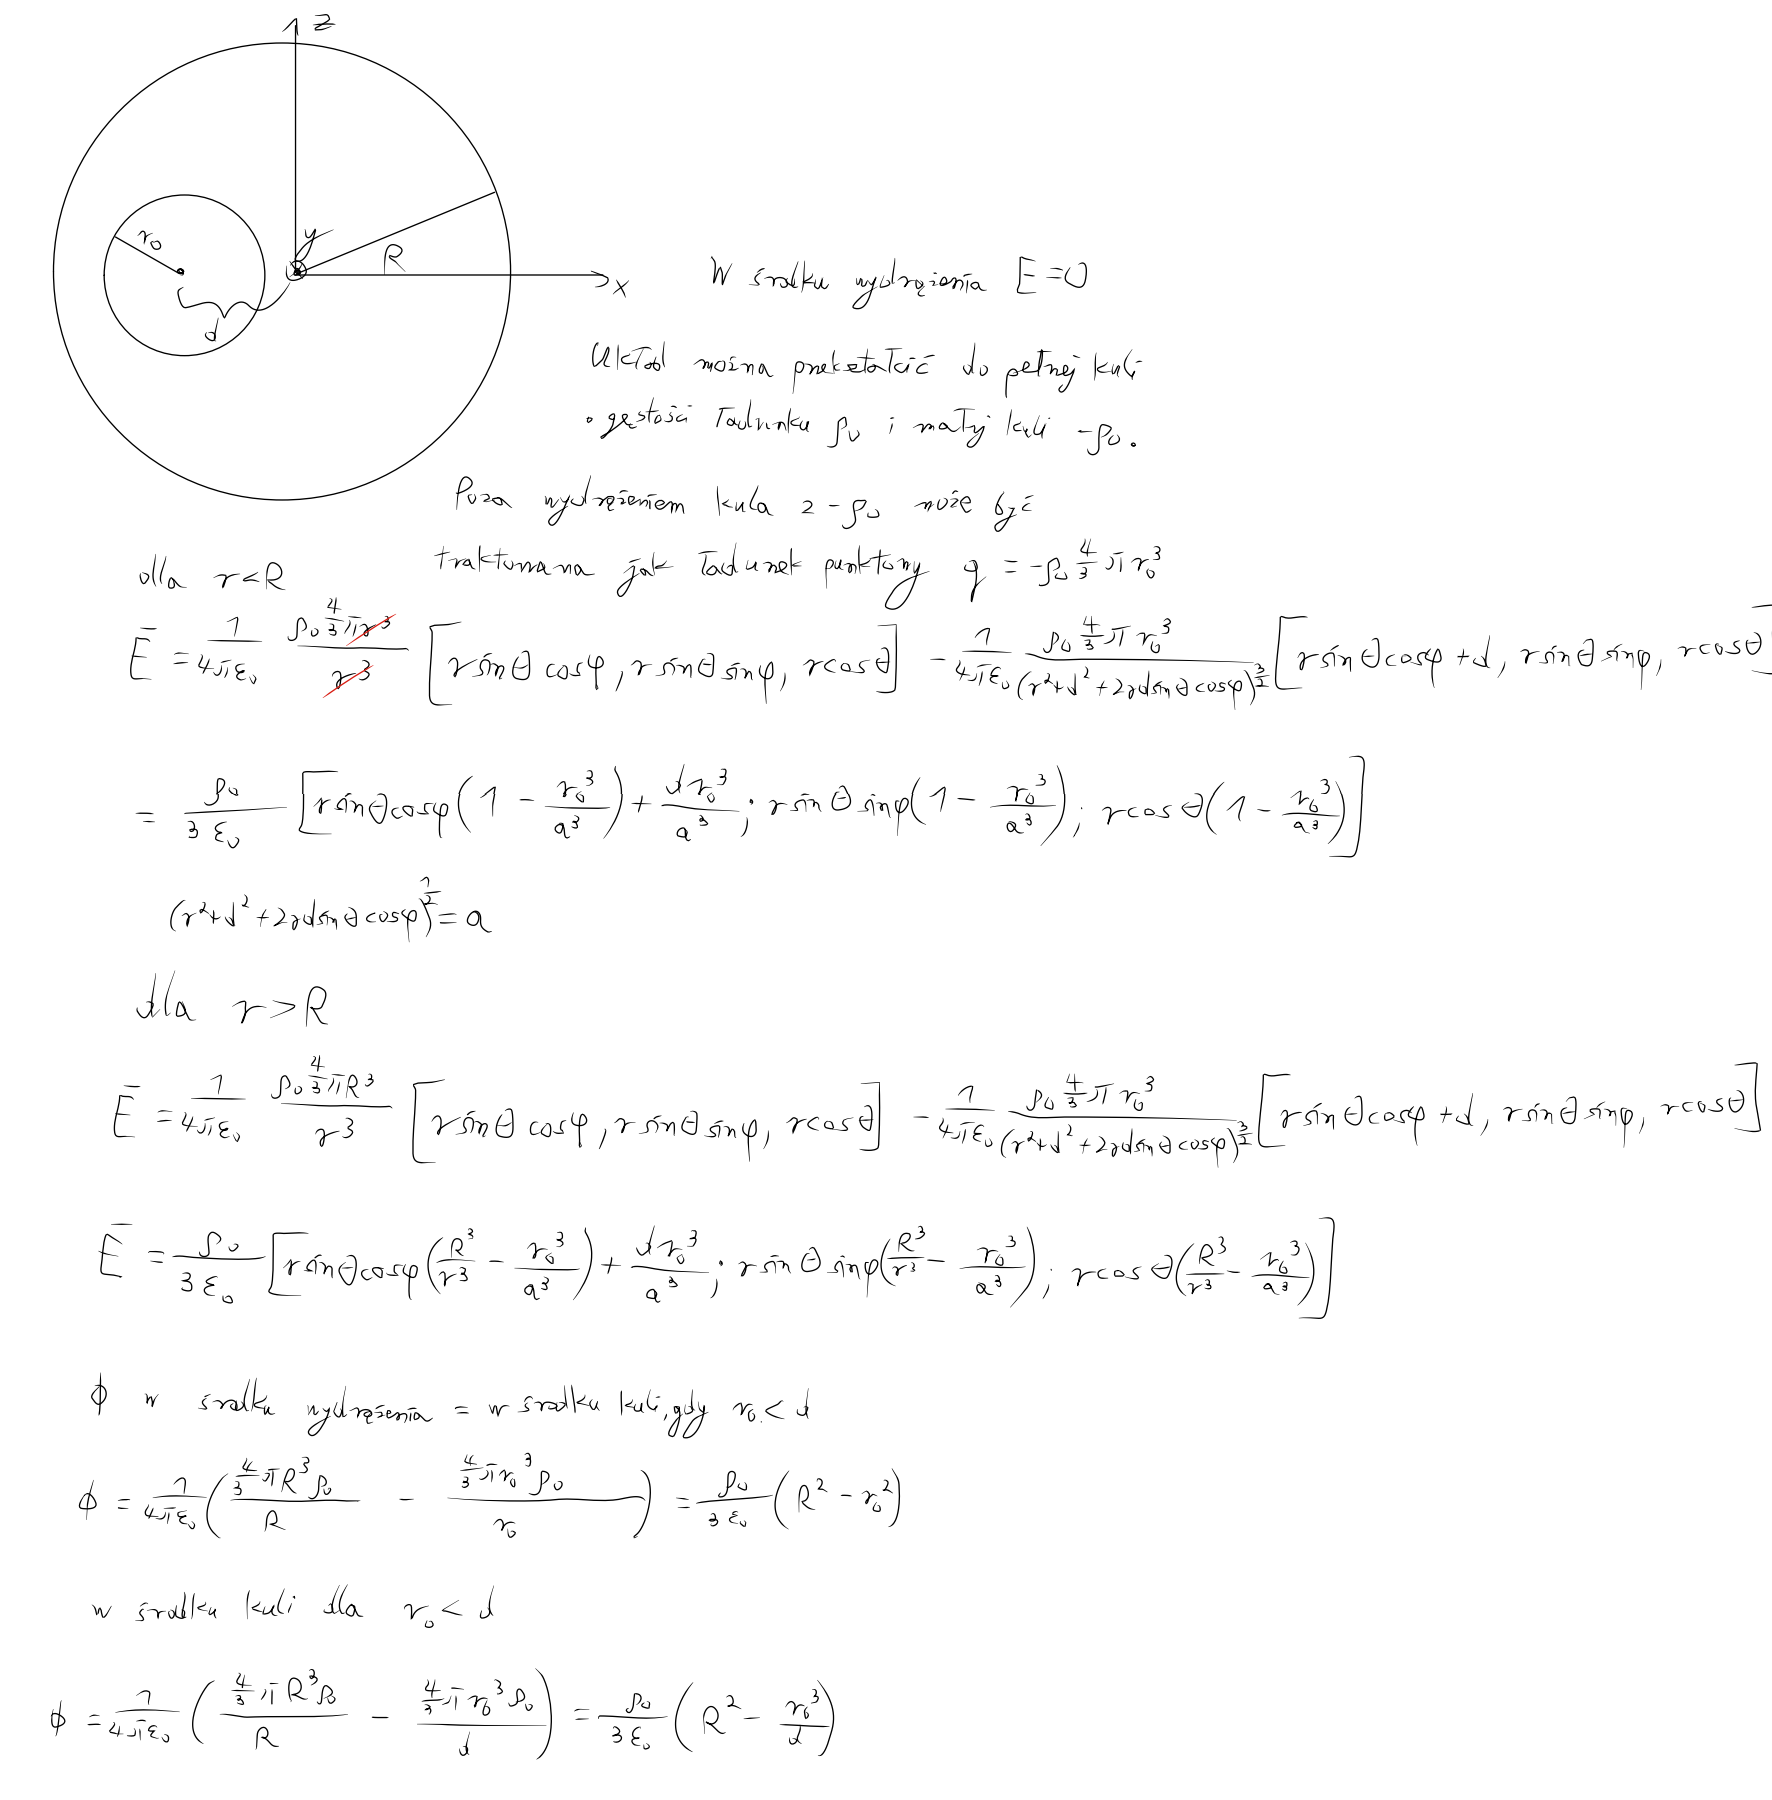 z
y
r₀
R
x
d
W środku wydrążenia E = 0
Układ można przekształcić do pełnej kuli
o gęstości ładunku ρ₀ i małej kuli -ρ₀.
Poza wydrążeniem kula z -ρ₀ może być
traktowana jak ładunek punktowy q = -ρ₀ 4/3 π r₀³
dla r < R
E̅ = 1/(4πε₀) (ρ₀ 4/3 π r³)/r³ [r sinθ cosφ, r sinθ sinφ, r cosθ] - 1/(4πε₀) (ρ₀ 4/3 π r₀³)/(r² + d² + 2rd sinθ cosφ)^(3/2) [r sinθ cosφ + d, r sinθ sinφ, r cosθ]
= ρ₀/(3ε₀) [r sinθ cosφ (1 - r₀³/a³) + d r₀³/a³; r sinθ sinφ (1 - r₀³/a³); r cosθ (1 - r₀³/a³)]
(r² + d² + 2rd sinθ cosφ)^(1/2) = a
dla r > R
E̅ = 1/(4πε₀) (ρ₀ 4/3 π R³)/r³ [r sinθ cosφ, r sinθ sinφ, r cosθ] - 1/(4πε₀) (ρ₀ 4/3 π r₀³)/(r² + d² + 2rd sinθ cosφ)^(3/2) [r sinθ cosφ + d, r sinθ sinφ, r cosθ]
E̅ = ρ₀/(3ε₀) [r sinθ cosφ (R³/r³ - r₀³/a³) + d r₀³/a³; r sinθ sinφ (R³/r³ - r₀³/a³); r cosθ (R³/r³ - r₀³/a³)]
ϕ w środku wydrążenia = w środku kuli, gdy r₀ < d
ϕ = 1/(4πε₀) ((4/3 π R³ ρ₀)/R - (4/3 π r₀³ ρ₀)/r₀) = ρ₀/(3ε₀) (R² - r₀²)
w środku kuli dla r₀ < d
ϕ = 1/(4πε₀) ((4/3 π R³ ρ₀)/R - (4/3 π r₀³ ρ₀)/d) = ρ₀/(3ε₀) (R² - r₀³/d)